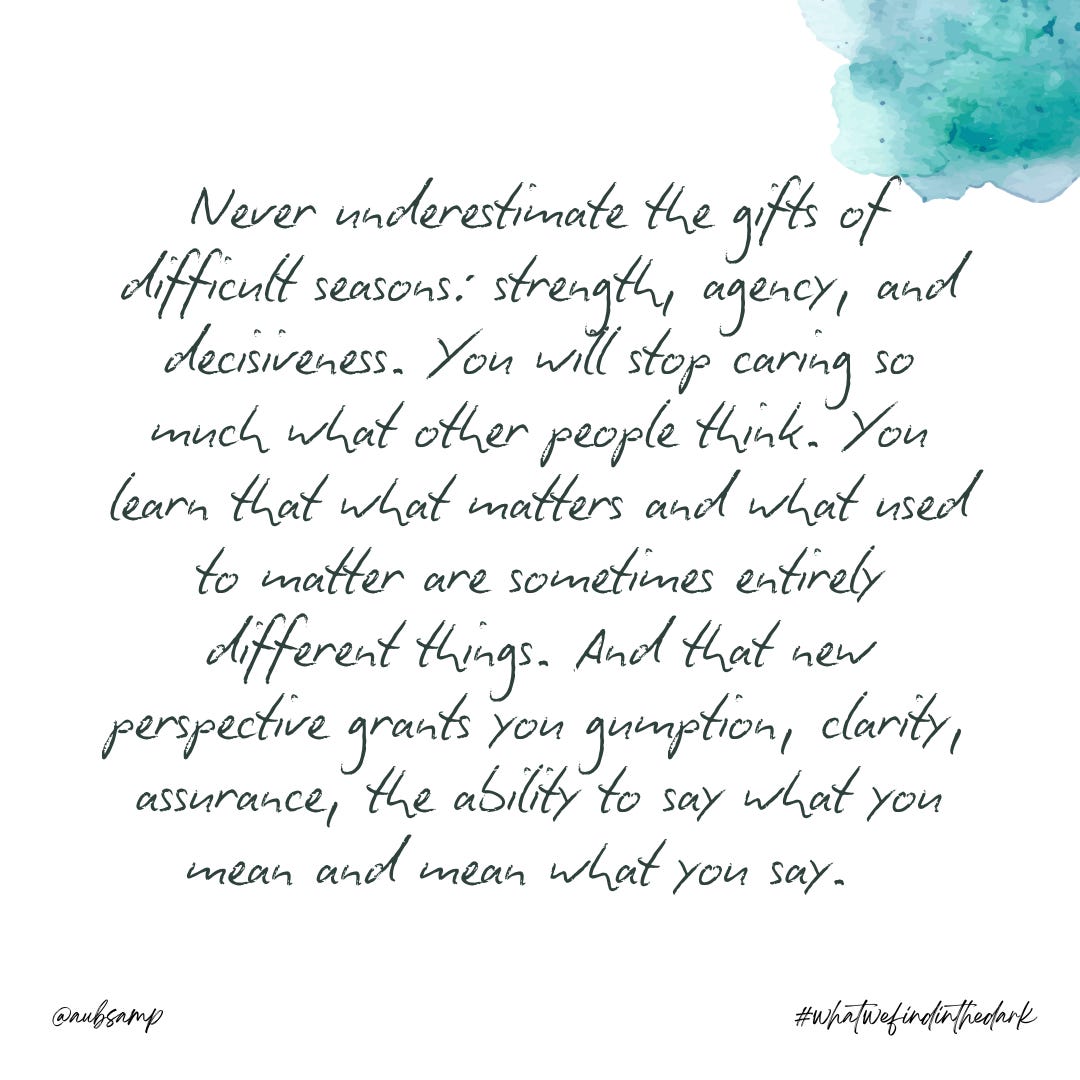 Never underestimate the gifts of
difficult seasons: strength, agency, and
decisiveness. You will stop caring so
much what other people think. You
learn that what matters and what used
to matter are sometimes entirely
different things. And that new
perspective grants you gumption, clarity,
assurance, the ability to say what you
mean and mean what you say.
@aubsamp
#whatwefindinthedark